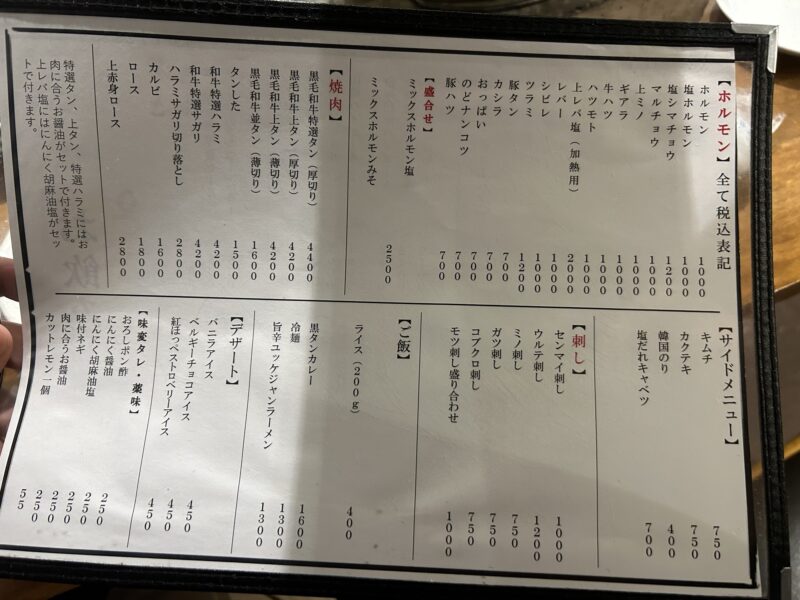 【ホルモン】全て税込表記
ホルモン 1000
塩ホルモン 1000
塩シマチョウ 1200
マルチョウ 1000
上ミノ 1000
ギアラ 1000
牛ハツ 1000
ハツモト 1000
上レバ塩（加熱用） 2000
レバー 1000
シビレ 1000
ツラミ 1200
豚タン 700
カシラ 700
おっぱい 700
のどナンコツ 700
豚ハツ 700
【盛合せ】
ミックスホルモン塩
ミックスホルモンみそ 2500
【焼肉】
黒毛和牛特選タン（厚切り） 4400
黒毛和牛上タン（厚切り） 4200
黒毛和牛上タン（薄切り） 4200
黒毛和牛並タン（薄切り） 1600
タンした 1500
和牛特選ハラミ 4200
和牛特選サガリ 4200
ハラミサガリ切り落とし 2800
カルビ 1600
ロース 1800
上赤身ロース 2800
特選タン、上タン、特選ハラミにはお
肉に合うお醤油がセットで付きます。
上レバ塩にはにんにく胡麻油塩がセッ
トで付きます。
【サイドメニュー】
キムチ 750
カクテキ 750
韓国のり 400
塩だれキャベツ 700
【刺し】
センマイ刺し 1000
ウルテ刺し 1200
ミノ刺し 750
ガツ刺し 750
コブクロ刺し 750
モツ刺し盛り合わせ 1000
【ご飯】
ライス（200g） 400
黒タンカレー 1600
冷麺 1300
旨辛ユッケジャンラーメン 1300
【デザート】
バニラアイス 450
ベルギーチョコアイス 450
紅ほっぺストロベリーアイス 450
【味変タレ・薬味】
おろしポン酢 250
にんにく醤油 250
にんにく胡麻油塩 250
味付ネギ 250
肉に合うお醤油 250
カットレモン一個 55